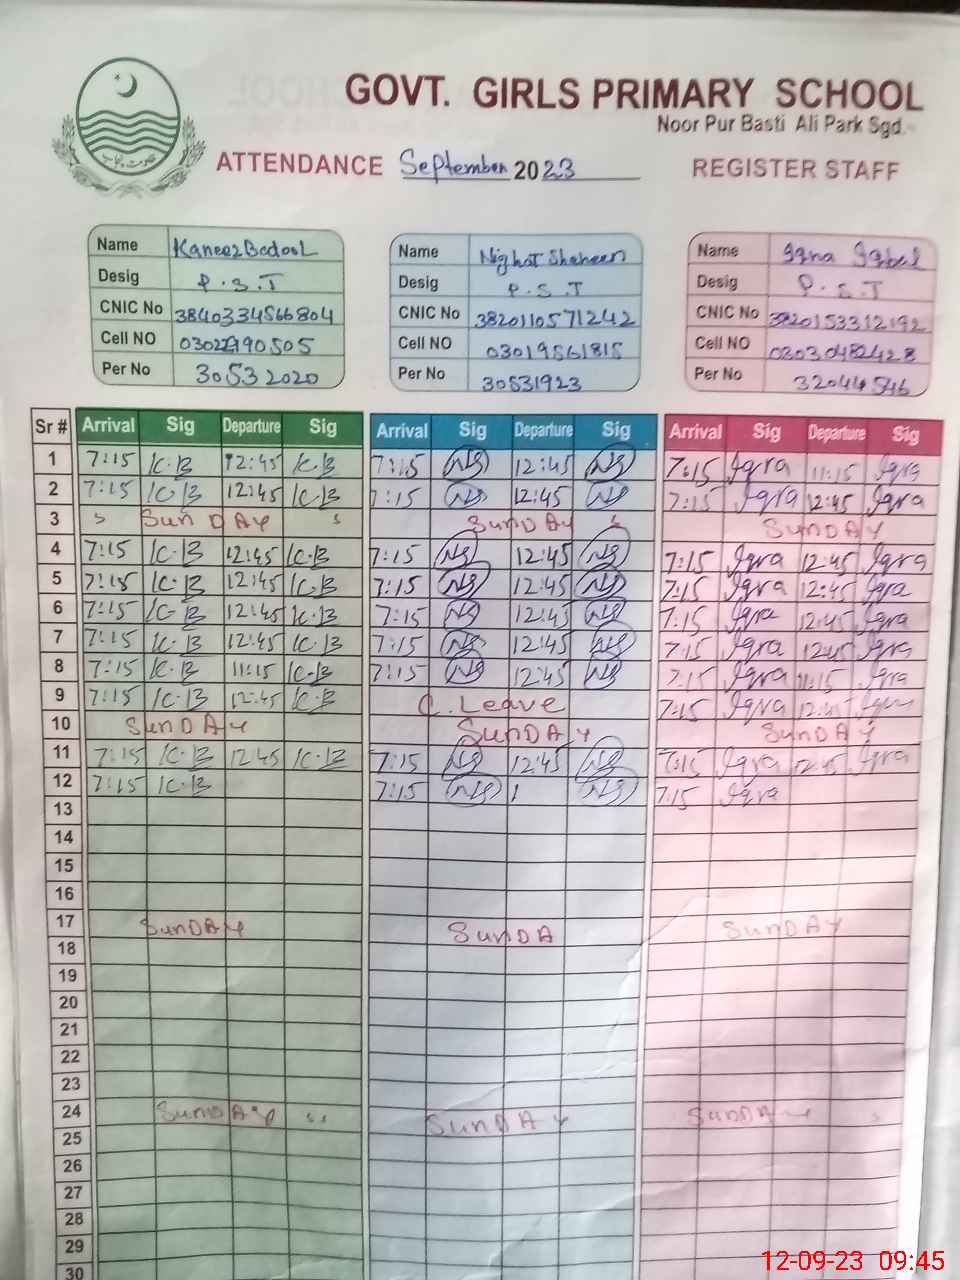 GOVT. GIRLS PRIMARY SCHOOL
Noor Pur Basti Ali Park Sgd.
ATTENDANCE September 2023 REGISTER STAFF
حکومت پنجاب
Name Kaneez Batool Name Nighat Shaheen Name Iqra Iqbal
Desig P.S.T Desig P.S.T Desig P.S.T
CNIC No 3840334566804 CNIC No 3820110571242 CNIC No 3820153312192
Cell NO Cell NO 03019561815 Cell NO 03030482428
Per No 30532020 Per No 30531923 Per No 32044546
Sr # Arrival Sig Departure Sig Arrival Sig Departure Sig Arrival Sig Departure Sig
1 7:15 K.B 12:45 K.B 7:15 NS 12:45 NS 7:15 Iqra 11:15 Iqra
2 7:15 K.B 12:45 K.B 7:15 NS 12:45 NS 7:15 Iqra 12:45 Iqra
3 SunDAY SunDAY SunDAY
4 7:15 K.B 12:45 K.B 7:15 NS 12:45 NS 7:15 Iqra 12:45 Iqra
5 7:15 K.B 12:45 K.B 7:15 NS 12:45 NS 7:15 Iqra 12:45 Iqra
6 7:15 K.B 12:45 K.B 7:15 NS 12:45 NS 7:15 Iqra 12:45 Iqra
7 7:15 K.B 12:45 K.B 7:15 NS 12:45 NS 7:15 Iqra 12:45 Iqra
8 7:15 K.B 11:15 K.B 7:15 NS 12:45 NS 7:15 Iqra 11:15 Iqra
9 7:15 K.B 12:45 K.B C. Leave 7:15 Iqra 12:45 Iqra
10 SunDAY SunDAY SunDAY
11 7:15 K.B 12 45 K.B 7:15 NS 12:45 NS 7:15 Iqra 12:45 Iqra
12 7:15 K.B 7:15 NS 1 NS 7:15 Iqra
13
14
15
16
17 SunDAY SunDA SunDAY
18
19
20
21
22
23
24 SunDAY SunDAY SunDAY
25
26
27
28
29
30
12-09-23 09:45